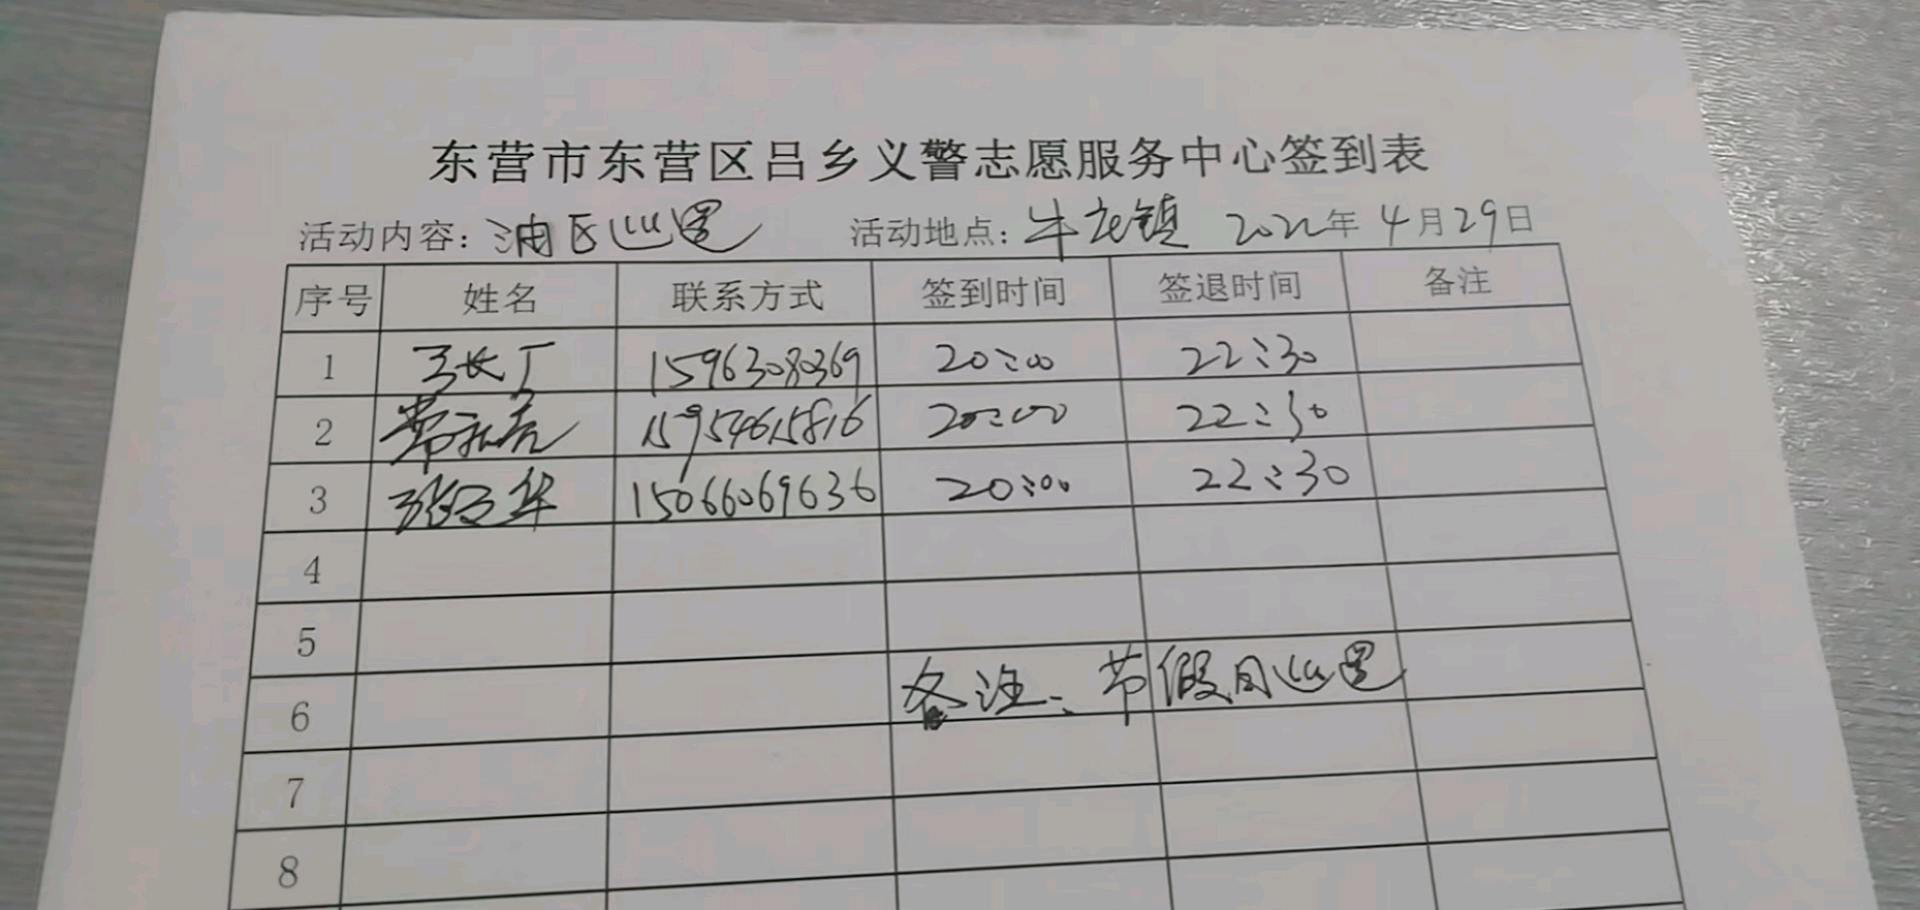 东营市东营区吕乡义警志愿服务中心签到表
活动内容: 油区巡逻 活动地点: 牛庄镇 2022年4月29日
序号 姓名 联系方式 签到时间 签退时间 备注
1 15963080369 20:00 22:30
2 15954615816 20:00 22:30
3 15066069636 20:00 22:30
4
5
6 备注: 节假日巡逻
7
8